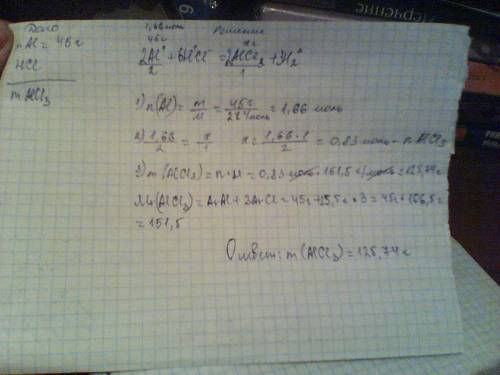 Дано
mAl = 45г
HCl
mAlCl₃
1,66 моль
45г
Решение
xг
2Al⁰ + 6H⁺Cl⁻ = 2AlCl₃ + 3H₂⁰
2 1
1) n(Al) = m/M = 45г/27г/моль = 1,66 моль
2) 1,66/2 = x/1 x = 1,66·1/2 = 0,83 моль - n AlCl₃
3) m (AlCl₃) = n·M = 0,83 моль · 151,5 г/моль = 125,74г
Mr(AlCl₃) = ArAl + 3ArCl = 45г + 35,5г * 3 = 45г + 106,5г =
= 151,5
Ответ: m(AlCl₃) = 125,74г
Черчение